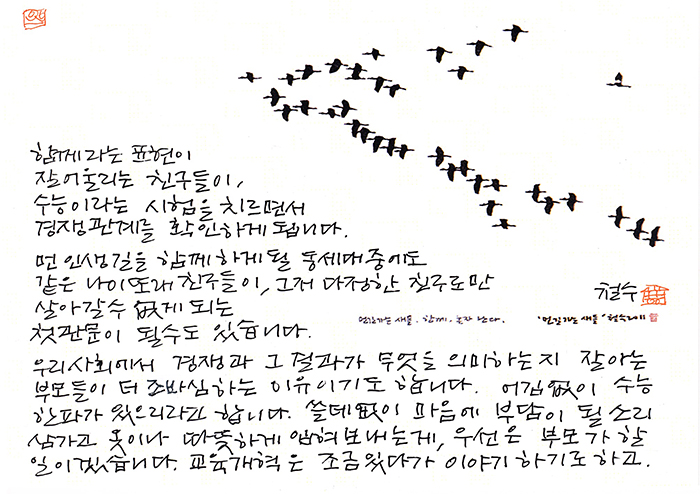 함께라는 표현이
잘 어울리는 친구들이,
수능이라는 시험을 치르면서
경쟁관계를 확인하게 됩니다.
먼 인생길을 함께 하게 될 동세대 중에도
같은 나이또래 친구들이, 그저 다정한 친구로만
살아갈 수 없게 되는
첫관문이 될 수도 있습니다.
철수
먼길가는 새들. 함께. 혼자 난다.
'먼길가는 새들' 철수2011
우리사회에서 경쟁과 그 결과가 무엇을 의미하는지 잘 아는
부모들이 더 조바심하는 이유이기도 합니다. 어김없이 수능
한파가 있으리라고 합니다. 쓸데없이 마음에 부담이 될 소리
삼가고 옷이나 따뜻하게 입혀 보내는게, 우선은 부모가 할
일이겠습니다. 교육개혁은 조금 있다가 이야기하기로 하고.